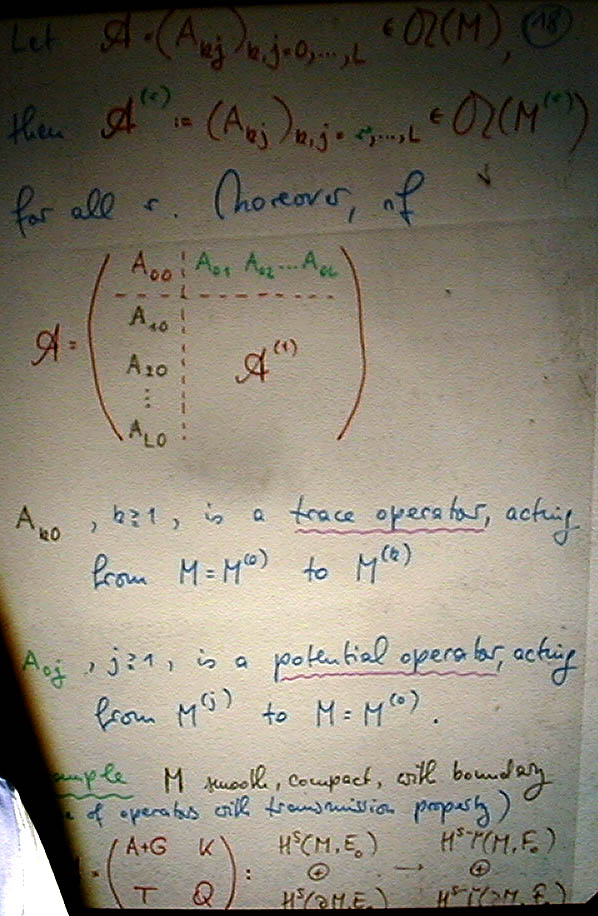 Let 𝒜 = (A_kj)_k,j=0,...,L ∈ 𝔄(M), 18
then 𝒜^(r) := (A_kj)_k,j=r,...,L ∈ 𝔄(M^(r))
for all r. Moreover, if
A_00 A_01 A_02 ... A_0L
A_10
𝒜 = A_20 𝒜^(1)
⋮
A_L0
A_k0, k≥1, is a trace operator, acting
from M = M^(0) to M^(k)
A_0j, j≥1, is a potential operator, acting
from M^(j) to M = M^(0).
M smooth, compact, with boundary
of operators with transmission property)
= (A+G K : H^s(M,E_0) → H^s-μ(M,F_0)
⊕ ⊕
T Q)